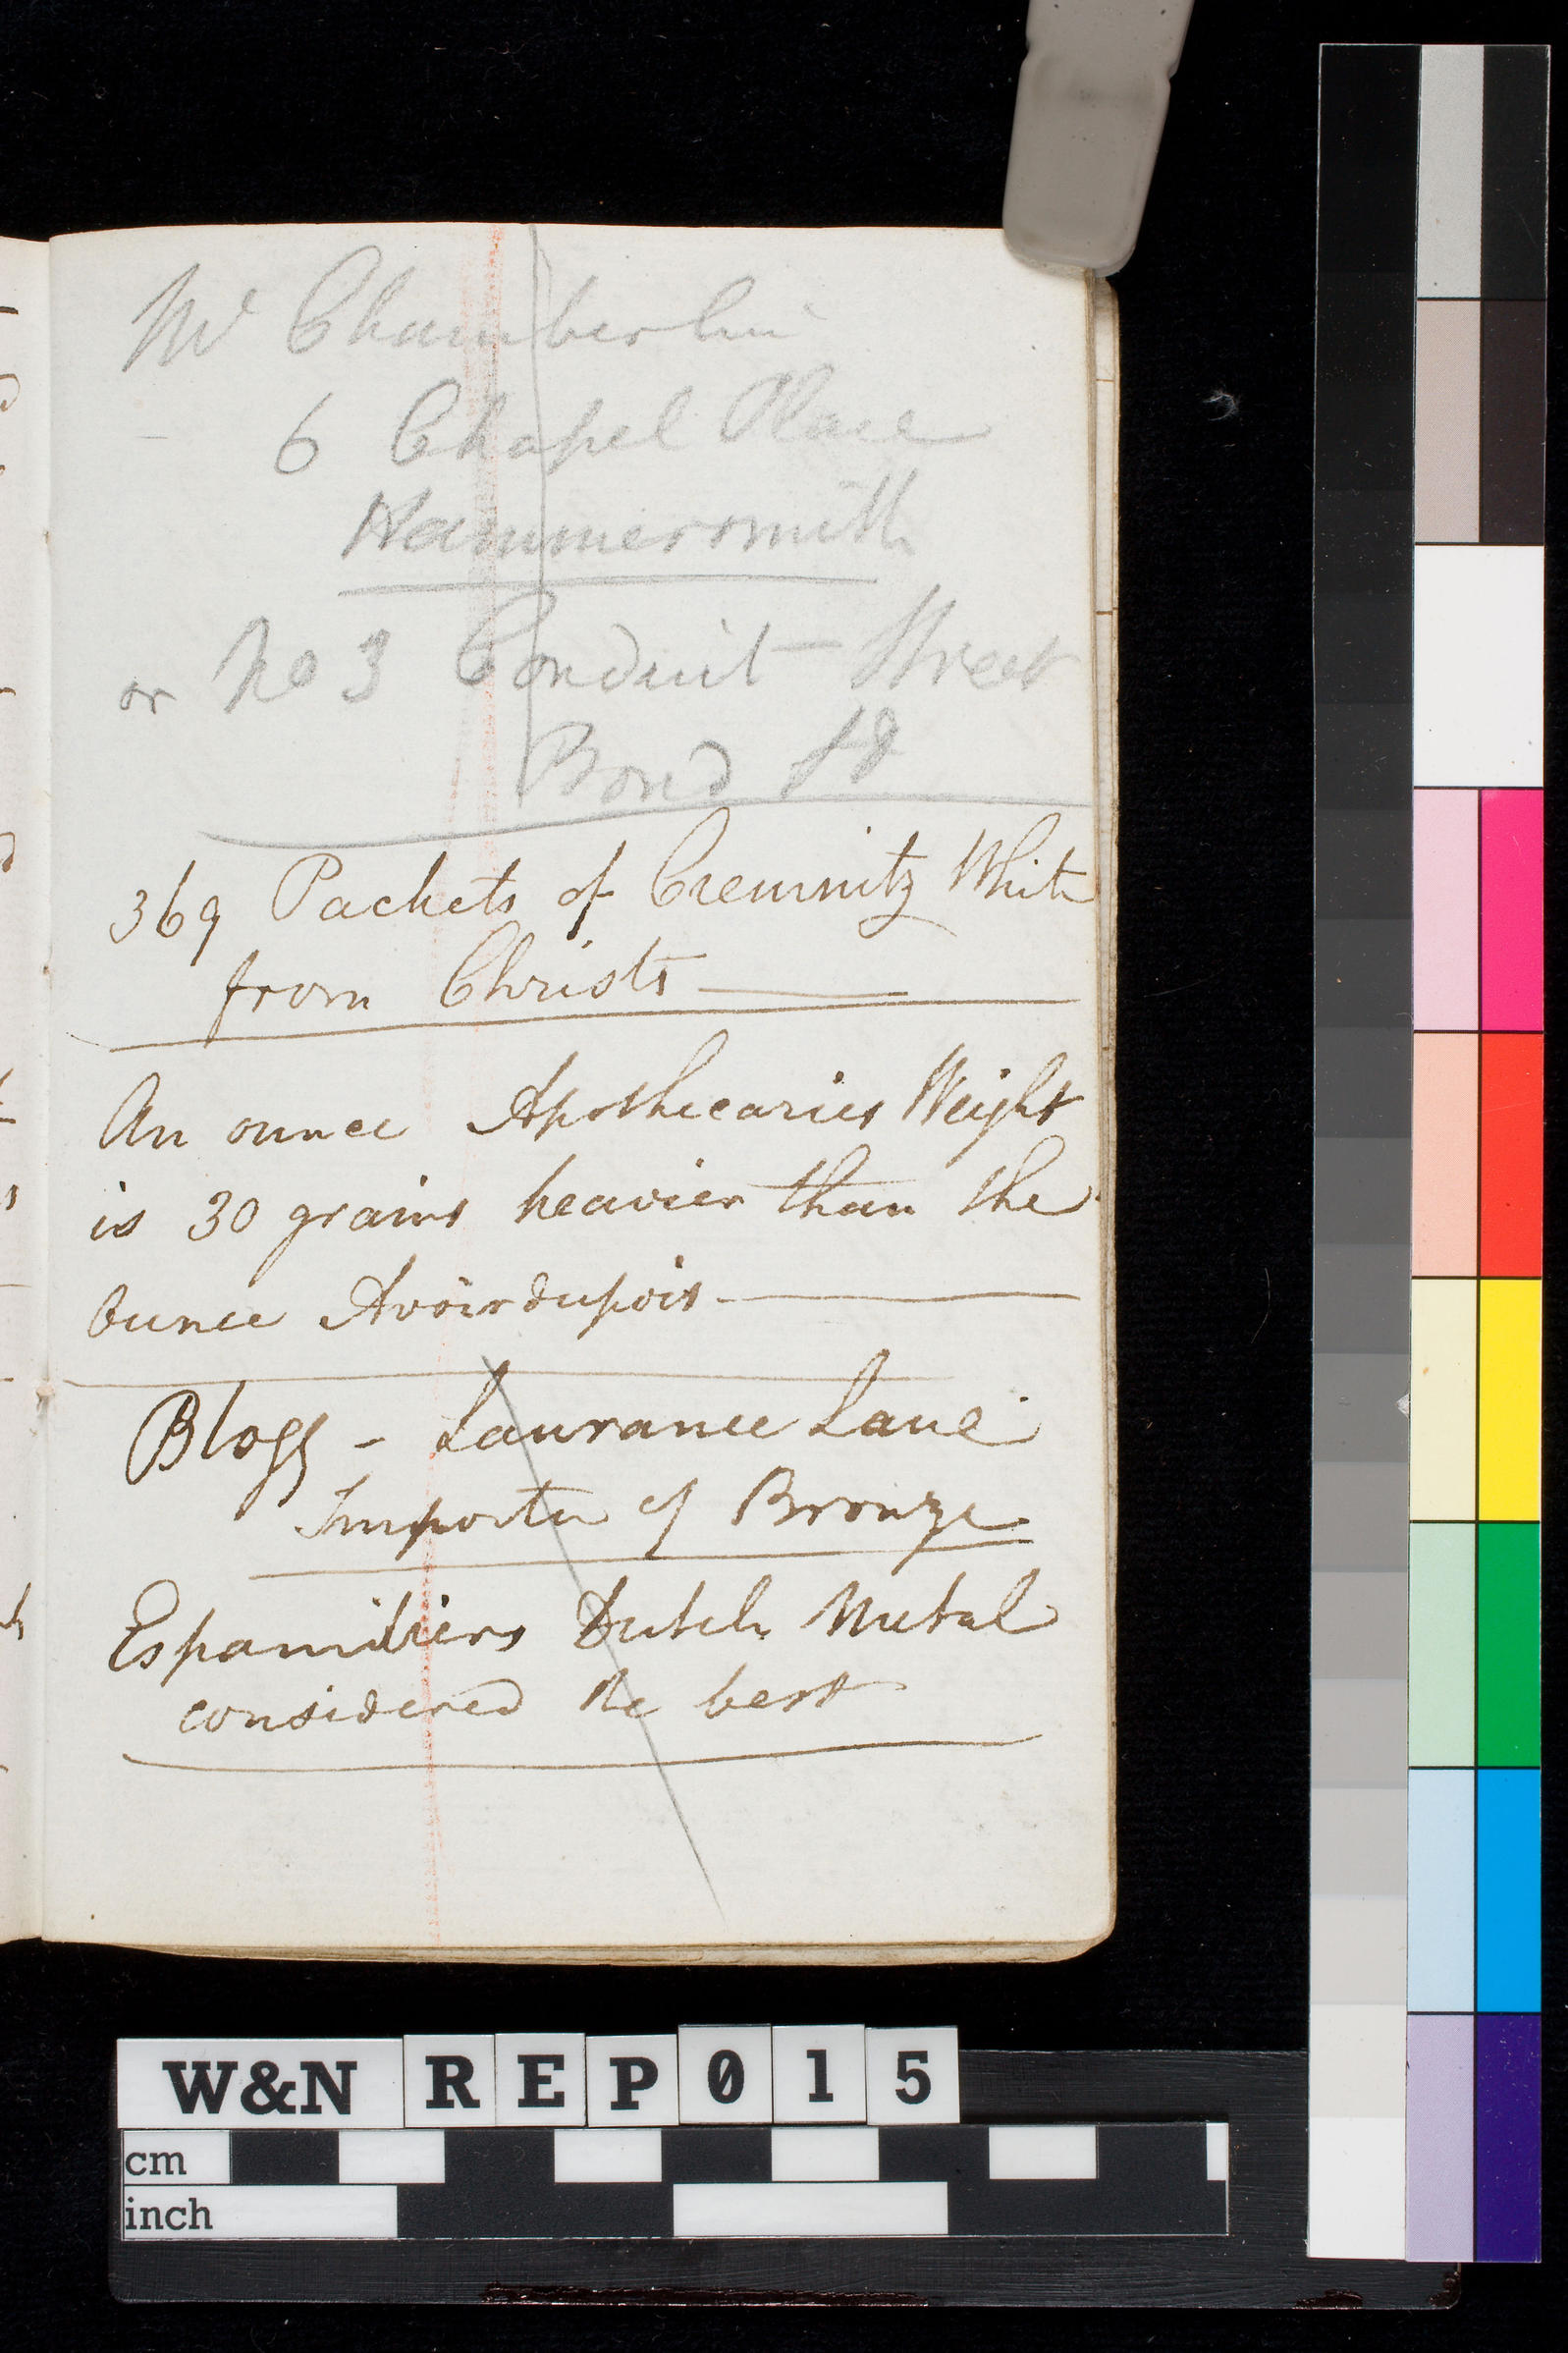 Mr Chamberlin
6 Chapel Place
Hammersmith
or No 3 Conduit Street
Bond St
369 Packets of Cremnitz White
from Christs
An ounce Apothecaries Weight
is 30 grains heavier than the
Ounce Avoirdupois
Blogg - Laurance Lane
Importer of Bronze
Dutch Metal
considered the best
W&N REP015
cm
inch